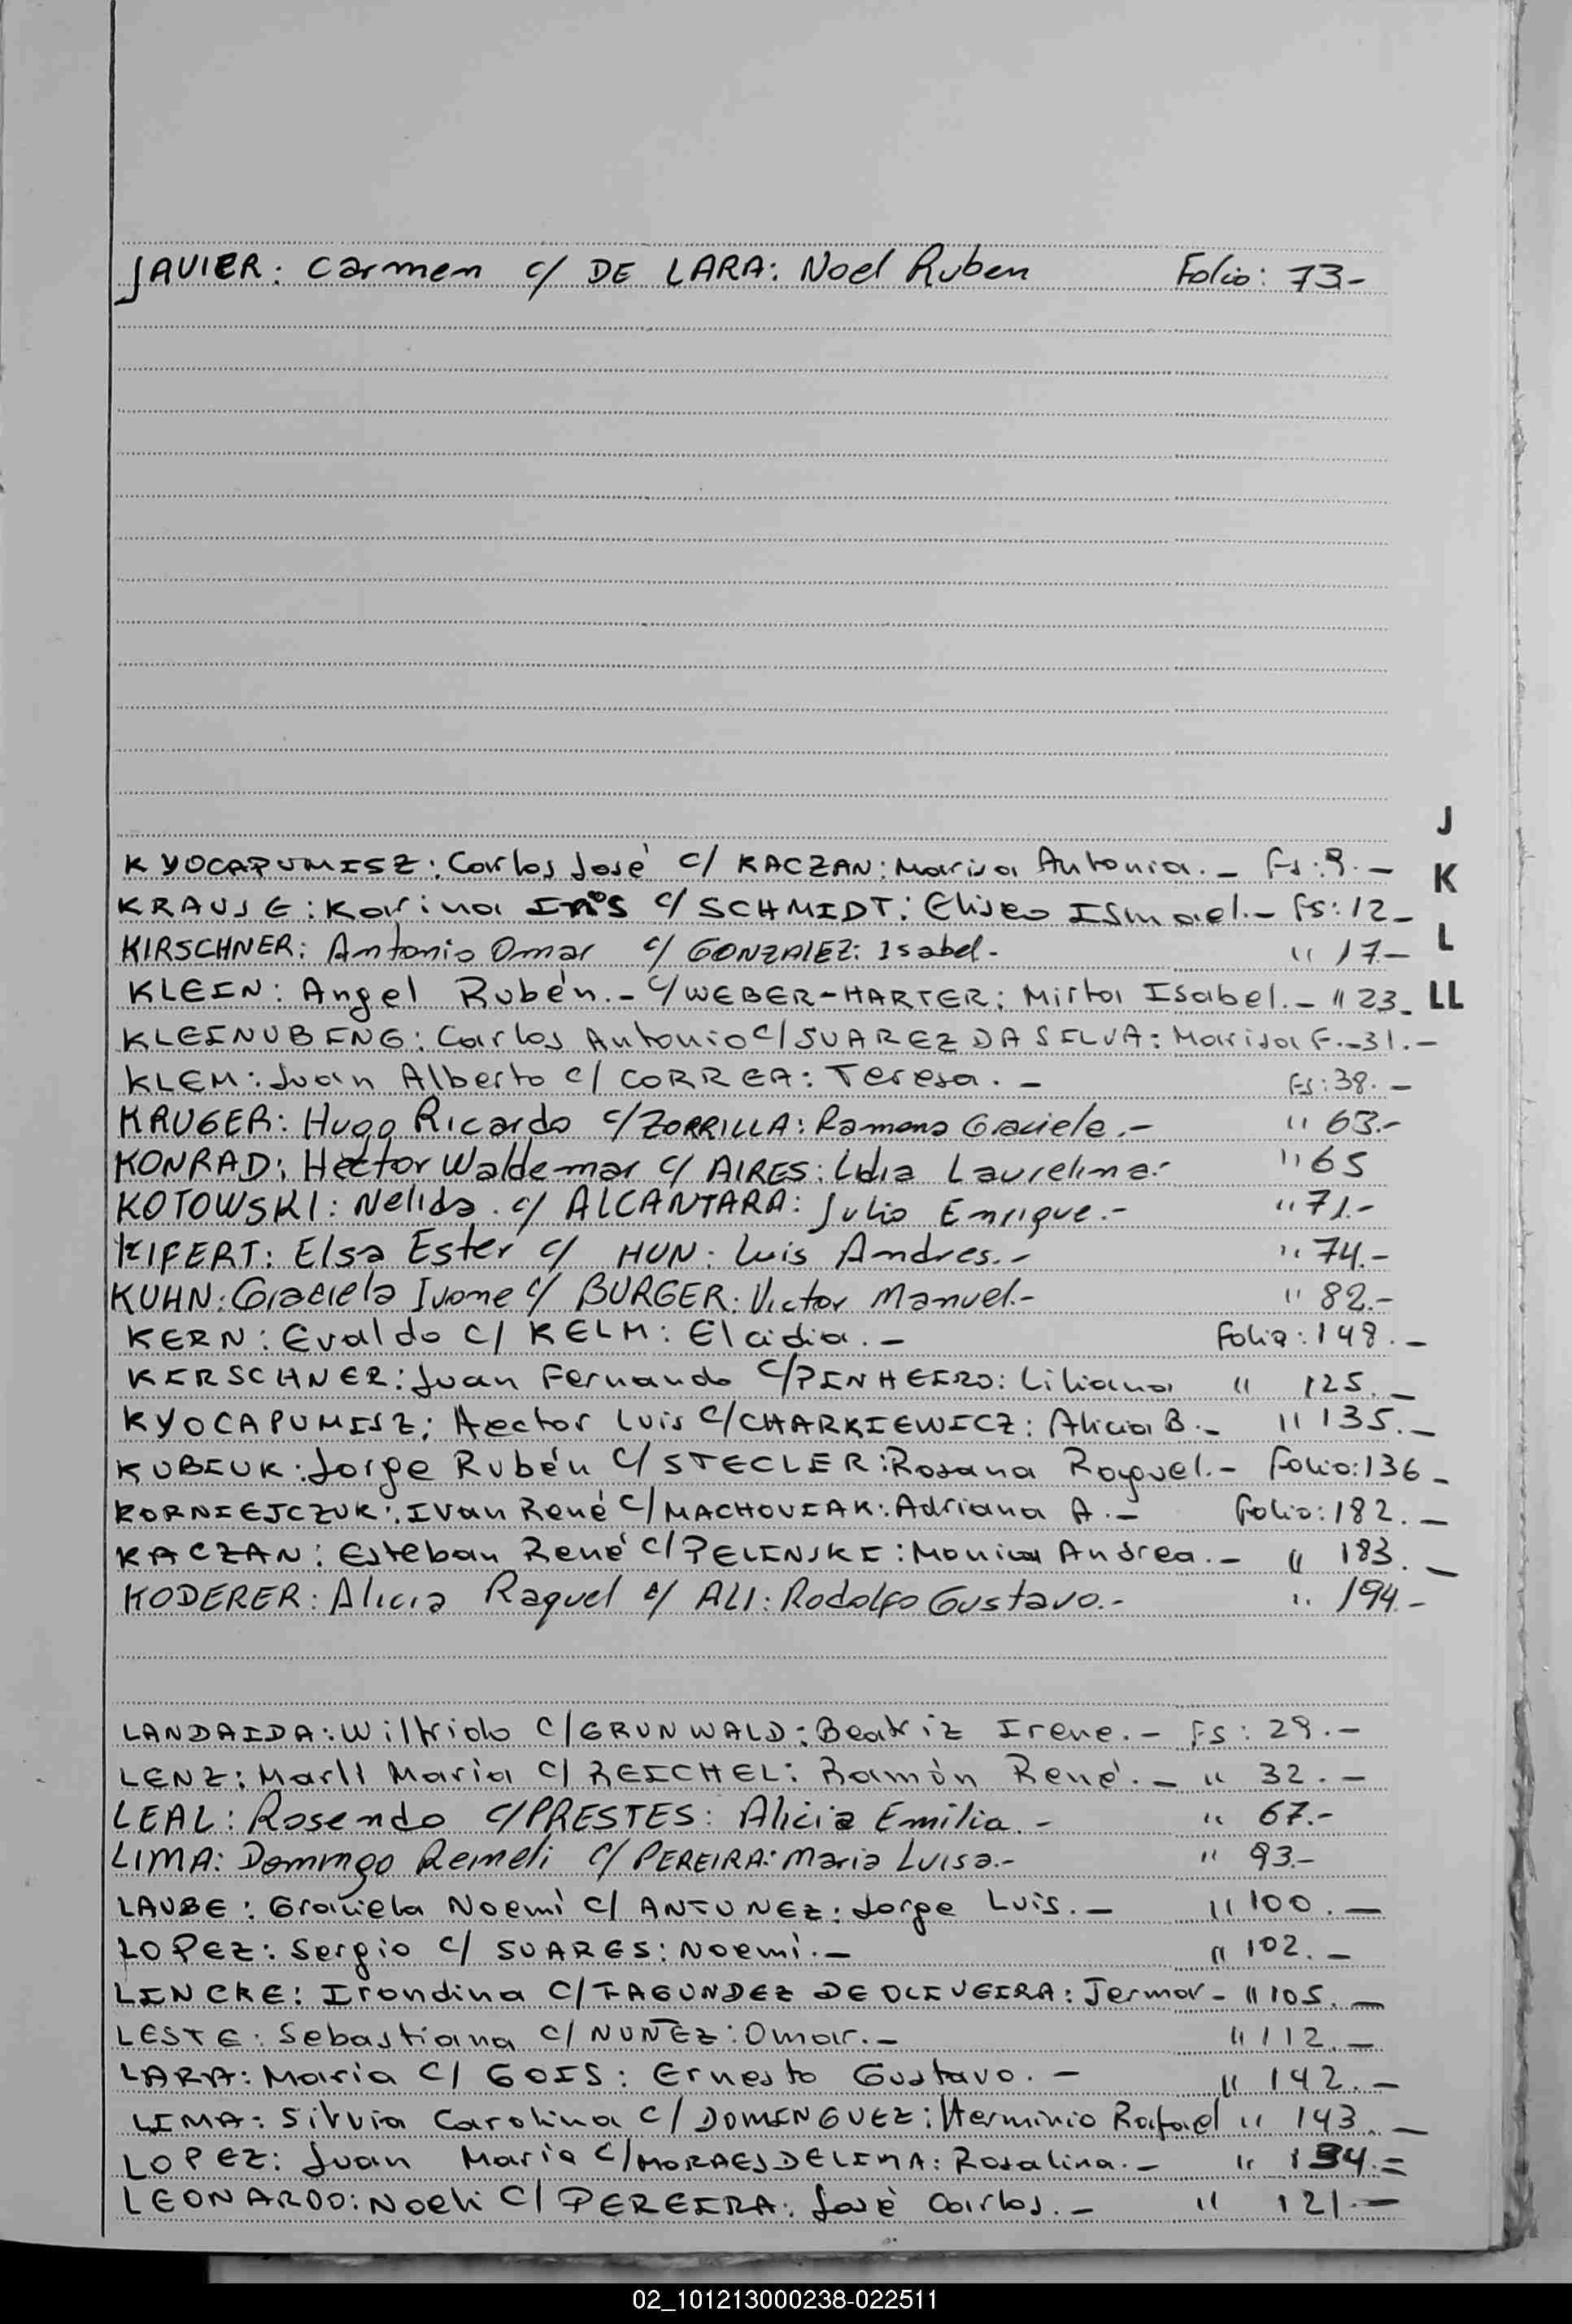 JAVIER: Carmen c/ DE LARA: Noel Ruben Folio: 73.-
J
KYOCAPUMISZ: Carlos José c/ KACZAN: Marisa Antonia.- Fs: 9.-
K
KRAUSE: Karina Inés c/ SCHMIDT: Eliseo Ismael.- Fs: 12-
KIRSCHNER: Antonio Omar c/ GONZALEZ: Isabel.- " 17.-
L
KLEIN: Angel Rubén.- c/ WEBER-HARTER: Mirta Isabel.- " 23-
LL
KLEINUBING: Carlos Antonio c/ SUAREZ DA SILVA: Marisa F.- 31.-
KLEM: Juan Alberto c/ CORREA: Teresa.- Fs: 38.-
KRUGER: Hugo Ricardo c/ ZORRILLA: Ramona Graciela.- " 63.-
KONRAD: Hector Waldemar c/ AIRES: Lidia Laurelina.- " 65
KOTOWSKI: Nelida. c/ ALCANTARA: Julio Enrique.- " 71.-
KIFERT: Elsa Ester c/ HUN: Luis Andres.- " 74.-
KUHN: Graciela Ivone c/ BURGER: Victor Manuel.- " 82.-
KERN: Evaldo c/ KELM: Elcidia.- Folio: 148.-
KERSCHNER: Juan Fernando c/ PINHEIRO: Liliana " 125.-
KYOCAPUMISZ: Hector Luis c/ CHARKIEWICZ: Alicia B.- " 135.-
KUBIUK: Jorge Rubén c/ STECLER: Rosana Raquel.- Folio: 136-
KORNIEJCZUK: Ivan René c/ MACHOVIAK: Adriana A.- Folio: 182.-
KACZAN: Esteban René c/ PELINSKI: Monica Andrea.- " 183.-
KODERER: Alicia Raquel c/ ALI: Rodolfo Gustavo.- " 194.-
LANDAIDA: Wilfrido c/ GRUNWALD: Beatriz Irene.- Fs: 29.-
LENZ: Marli Maria c/ REICHEL: Ramón René.- " 32.-
LEAL: Rosendo c/ PRESTES: Alicia Emilia.- " 67.-
LIMA: Domingo Remeli c/ PEREIRA: Maria Luisa.- " 93.-
LAUBE: Graciela Noemì c/ ANTUNEZ: Jorge Luis.- " 100.-
LOPEZ: Sergio c/ SUARES: Noemì.- " 102.-
LINCKE: Irondina c/ FAGUNDEZ DE OLIVEIRA: Jermar- " 105.-
LESTE: Sebastiana c/ NUÑEZ: Omar.- " 112.-
LARA: Maria c/ GOIS: Ernesto Gustavo.- " 142.-
LIMA: Silvia Carolina c/ DOMINGUEZ: Herminio Rafael " 143.-
LOPEZ: Juan Maria c/ MORAES DE LIMA: Rosalina.- "
LEONARDO: Noeli c/ PEREIRA: José Carlos.- " 121.-
02_101213000238-022511